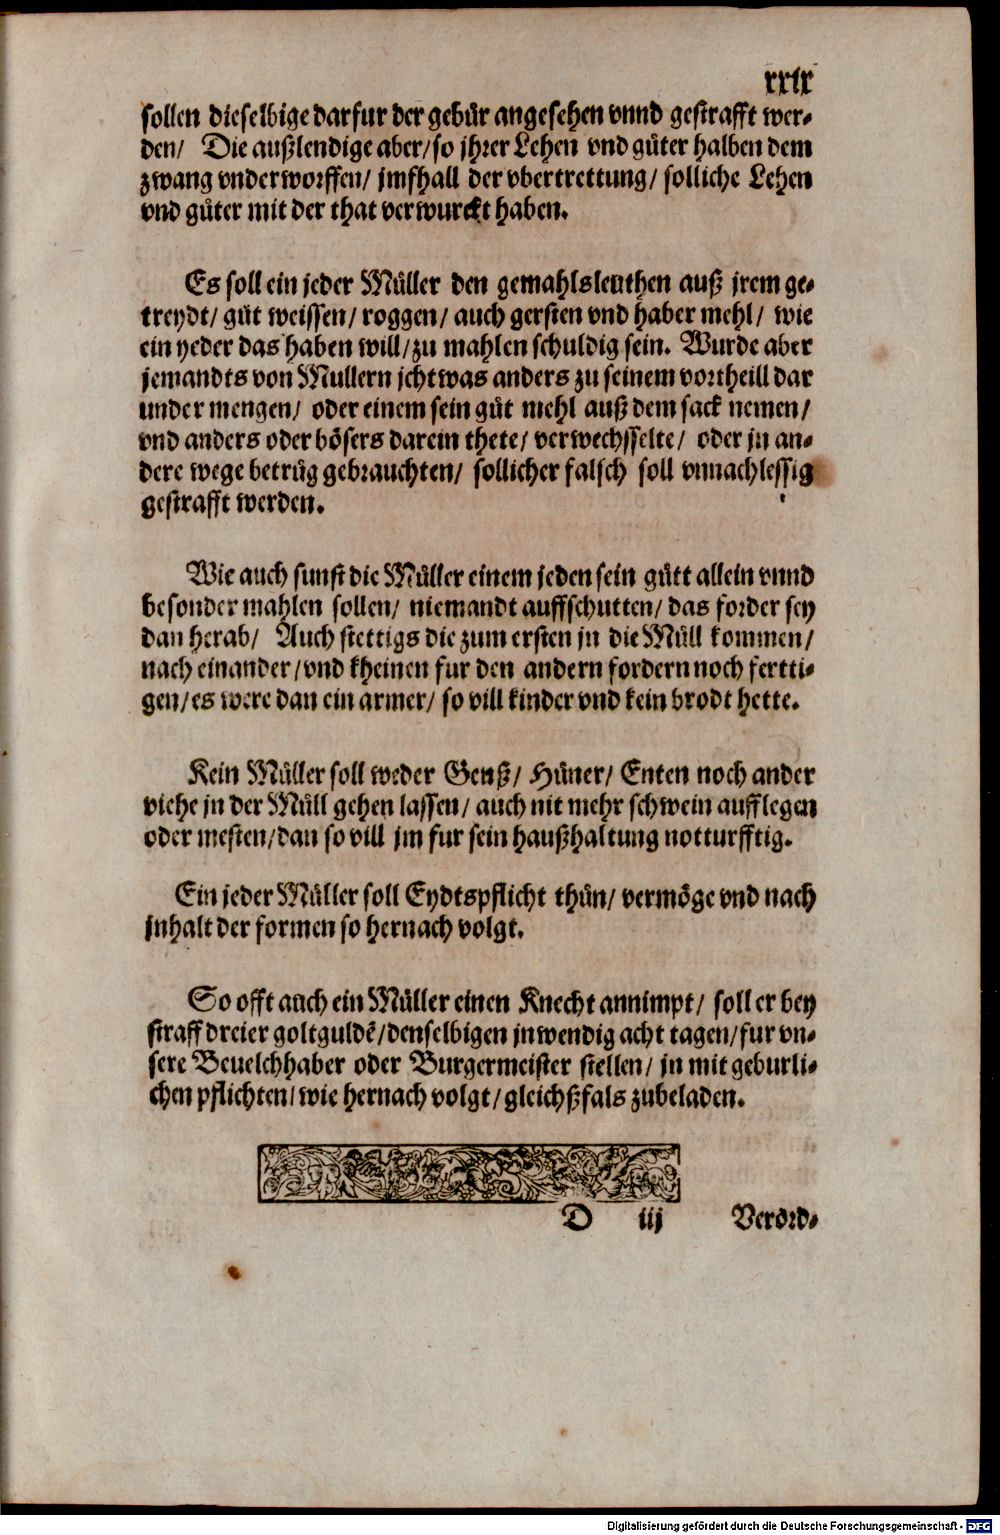 xxix
sollen dieselbige darfur der gebür angesehen vnnd gestrafft wer⸗
den/ Die außlendige aber/ so jhrer Lehen vnd güter halben dem
zwang vnderworffen/ jmfhall der vbertrettung/ solliche Lehen
vnd güter mit der that verwurckt haben.
Es soll ein jeder Müller den gemahlsleuthen auß jrem ge⸗
treydt/ güt weissen/ roggen/ auch gersten vnd haber mehl/ wie
ein yeder das haben will/ zu mahlen schuldig sein. Wurde aber
jemandts von Mullern ichtwas anders zu seinem vortheill dar
under mengen/ oder einem sein güt mehl auß dem sack nemen/
vnd anders oder bösers darein thete/ verwechsselte/ oder jn an⸗
dere wege betrüg gebrauchten/ sollicher falsch soll vnnachlessig
gestrafft werden.
Wie auch sunst die Müller einem jeden sein gütt allein vnnd
besonder mahlen sollen/ niemandt auffschutten/ das forder sey
dan herab/ Auch stettigs die zum ersten jn die Müll kommen/
nach einander/ vnd kheinen fur den andern fordern noch fertti⸗
gen/ es were dan ein armer/ so vill kinder vnd kein brodt hette.
Kein Müller soll weder Genß/ Hüner/ Enten noch ander
viehe jn der Müll gehen lassen/ auch nit mehr schwein aufflegen
oder mesten/ dan so vill jm fur sein haußhaltung notturfftig.
Ein jeder Müller soll Eydtspflicht thün/ vermöge vnd nach
jnhalt der formen so hernach volgt.
So offt auch ein Müller einen Knecht annimpt/ soll er bey
straff dreier goltguldē/ denselbigen jnwendig acht tagen/ fur vn⸗
sere Beuelchhaber oder Burgermeister stellen/ jn mit geburli⸗
chen pflichten/ wie hernach volgt/ gleichßfals zubeladen.
D iij Verörd⸗
Digitalisierung gefördert durch die Deutsche Forschungsgemeinschaft - DFG